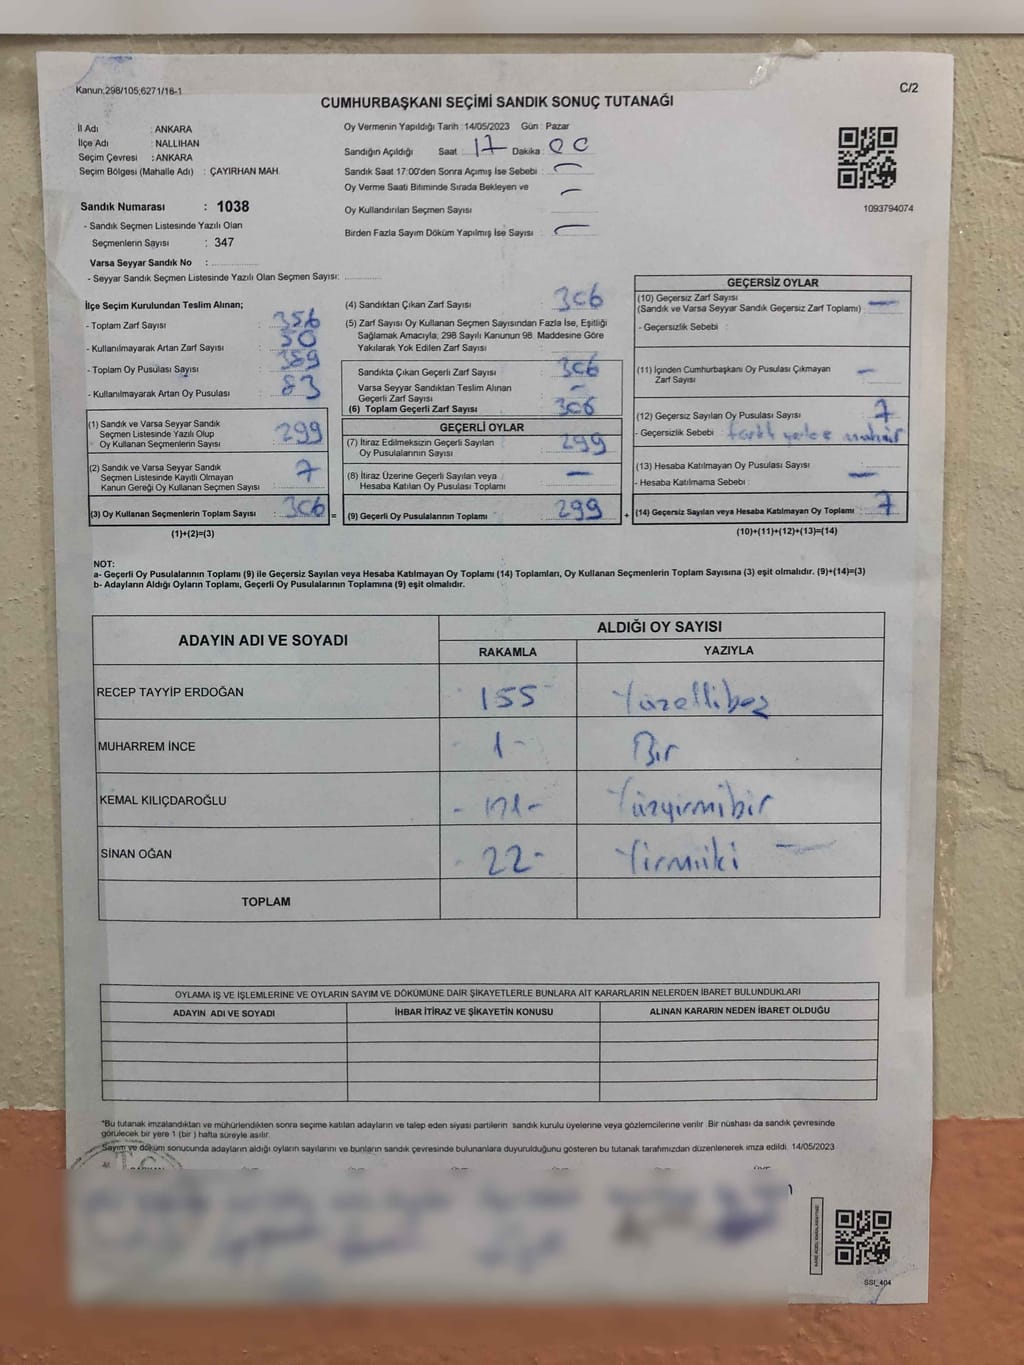 Kanun,298/105,6271/16-1
C/2
CUMHURBAŞKANI SEÇİMİ SANDIK SONUÇ TUTANAĞI
İl Adı : ANKARA
İlçe Adı : NALLIHAN
Seçim Çevresi : ANKARA
Seçim Bölgesi (Mahalle Adı) : ÇAYIRHAN MAH.
Oy Vermenin Yapıldığı Tarih : 14/05/2023 Gün : Pazar
Sandığın Açıldığı Saat : 17 Dakika : 00
Sandık Saat 17:00'den Sonra Açımış İse Sebebi : —
Oy Verme Saati Bitiminde Sırada Bekleyen ve —
Oy Kullandırılan Seçmen Sayısı
Birden Fazla Sayım Döküm Yapılmış İse Sayısı : —
1093794074
Sandık Numarası : 1038
- Sandık Seçmen Listesinde Yazılı Olan
Seçmenlerin Sayısı : 347
Varsa Seyyar Sandık No :
- Seyyar Sandık Seçmen Listesinde Yazılı Olan Seçmen Sayısı:
İlçe Seçim Kurulundan Teslim Alınan;
- Toplam Zarf Sayısı : 356
- Kullanılmayarak Artan Zarf Sayısı : 50
- Toplam Oy Pusulası Sayısı : 389
- Kullanılmayarak Artan Oy Pusulası : 83
(1) Sandık ve Varsa Seyyar Sandık
Seçmen Listesinde Yazılı Olup
Oy Kullanan Seçmenlerin Sayısı : 299
(2) Sandık ve Varsa Seyyar Sandık
Seçmen Listesinde Kayıtlı Olmayan
Kanun Gereği Oy Kullanan Seçmen Sayısı : 7
(3) Oy Kullanan Seçmenlerin Toplam Sayısı : 306
(1)+(2)=(3)
(4) Sandıktan Çıkan Zarf Sayısı : 306
(5) Zarf Sayısı Oy Kullanan Seçmen Sayısından Fazla İse, Eşitliği
Sağlamak Amacıyla, 298 Sayılı Kanunun 98. Maddesine Göre
Yakılarak Yok Edilen Zarf Sayısı :
Sandıkta Çıkan Geçerli Zarf Sayısı : 306
Varsa Seyyar Sandıktan Teslim Alınan
Geçerli Zarf Sayısı : -
(6) Toplam Geçerli Zarf Sayısı : 306
GEÇERLİ OYLAR
(7) İtiraz Edilmeksizin Geçerli Sayılan
Oy Pusulalarının Sayısı : 299
(8) İtiraz Üzerine Geçerli Sayılan veya
Hesaba Katılan Oy Pusulası Toplamı : —
= (9) Geçerli Oy Pusulalarının Toplamı : 299 +
GEÇERSİZ OYLAR
(10) Geçersiz Zarf Sayısı
(Sandık ve Varsa Seyyar Sandık Geçersiz Zarf Toplamı) : —
- Geçersizlik Sebebi :
(11) İçinden Cumhurbaşkanı Oy Pusulası Çıkmayan
Zarf Sayısı : —
(12) Geçersiz Sayılan Oy Pusulası Sayısı : 7
- Geçersizlik Sebebi : farklı yerlere mühür
(13) Hesaba Katılmayan Oy Pusulası Sayısı : —
- Hesaba Katılmama Sebebi :
(14) Geçersiz Sayılan veya Hesaba Katılmayan Oy Toplamı : 7
(10)+(11)+(12)+(13)=(14)
NOT:
a- Geçerli Oy Pusulalarının Toplamı (9) ile Geçersiz Sayılan veya Hesaba Katılmayan Oy Toplamı (14) Toplamları, Oy Kullanan Seçmenlerin Toplam Sayısına (3) eşit olmalıdır. (9)+(14)=(3)
b- Adayların Aldığı Oyların Toplamı, Geçerli Oy Pusulalarının Toplamına (9) eşit olmalıdır.
ADAYIN ADI VE SOYADI
ALDIĞI OY SAYISI
RAKAMLA YAZIYLA
RECEP TAYYİP ERDOĞAN - 155 - Yüzellibeş
MUHARREM İNCE - 1 - Bir
KEMAL KILIÇDAROĞLU - 121 - Yüzyirmibir
SİNAN OĞAN - 22 - Yirmiiki —
TOPLAM
OYLAMA İŞ VE İŞLEMLERİNE VE OYLARIN SAYIM VE DÖKÜMÜNE DAİR ŞİKAYETLERLE BUNLARA AİT KARARLARIN NELERDEN İBARET BULUNDUKLARI
ADAYIN ADI VE SOYADI İHBAR İTİRAZ VE ŞİKAYETİN KONUSU ALINAN KARARIN NEDEN İBARET OLDUĞU
*Bu tutanak imzalandıktan ve mühürlendikten sonra seçime katılan adayların ve talep eden siyasi partilerin sandık kurulu üyelerine veya gözlemcilerine verilir. Bir nüshası da sandık çevresinde
görülecek bir yere 1 (bir ) hafta süreyle asılır.
Sayım ve döküm sonucunda adayların aldığı oyların sayılarını ve bunların sandık çevresinde bulunanlara duyurulduğunu gösteren bu tutanak tarafımızdan düzenlenerek imza edildi. 14/05/2023
T.C.
SSI_404